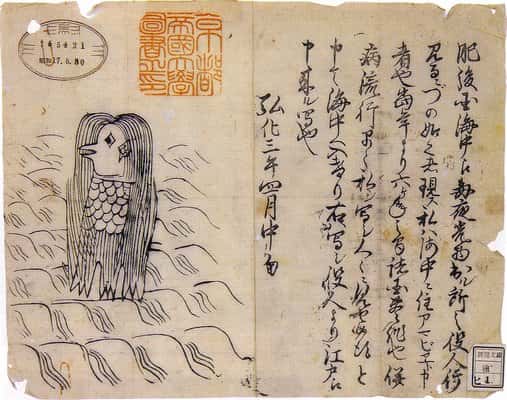 肥後国海中え毎夜光物出ル所之役人行
見るニづの如之者現ス私ハ海中ニ住アマビヱト申
者也当年より六ケ年之間諸国豊作也併
病流行早々私ヲ写シ人々ニ見セ候得と
申て海中へ入けり右写シ役人より江戸え
申来ル写也
弘化三年四月中旬
京都
帝國大學
圖書之印